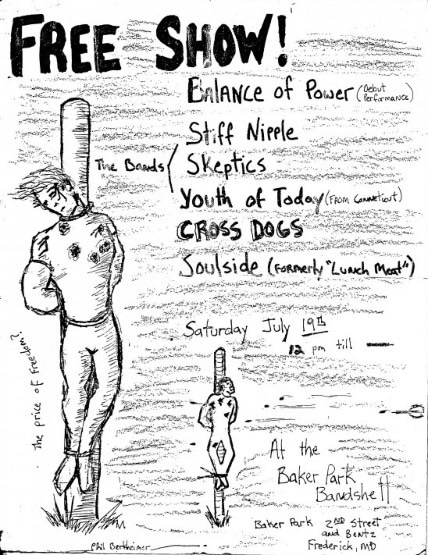 FREE SHOW!
Balance of Power (Debut Performance)
Stiff Nipple
The Bands
Skeptics
Youth of Today (FROM CONNETICUT)
CROSS DOGS
Soulside (Formerly "Lunch Meat")
Saturday July 19th
12 pm till
The price of freedom?
At the
Baker Park
Bandshell
Baker Park 2nd Street
and Bentz
Frederick, MD
Phil Bertheimer